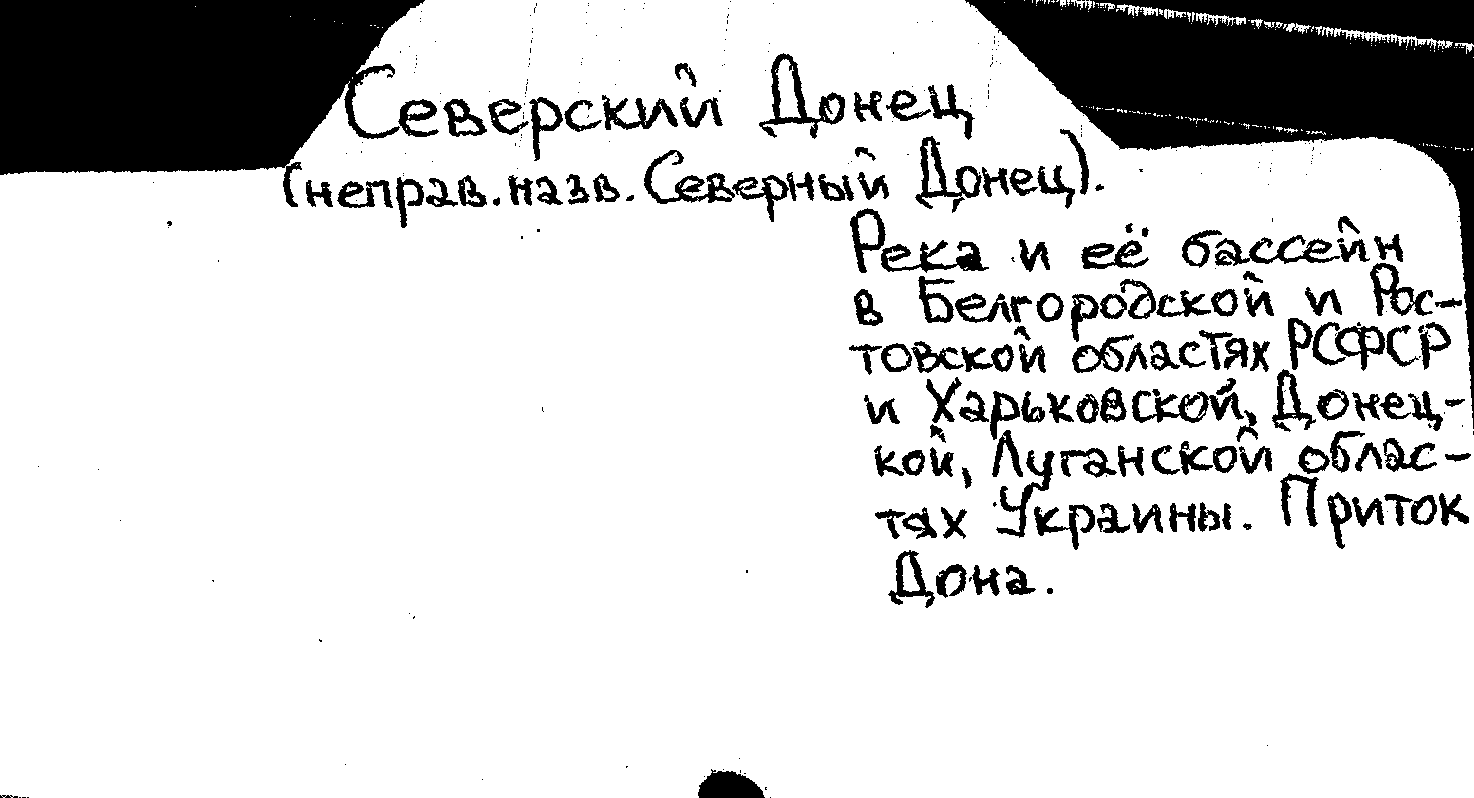 Северский Донец
(неправ. назв. Северный Донец).
Река и её бассейн
в Белгородской и Рос-
товской областях РСФСР
и Харьковской, Донец-
кой, Луганской облас-
тях Украины. Приток
Дона.